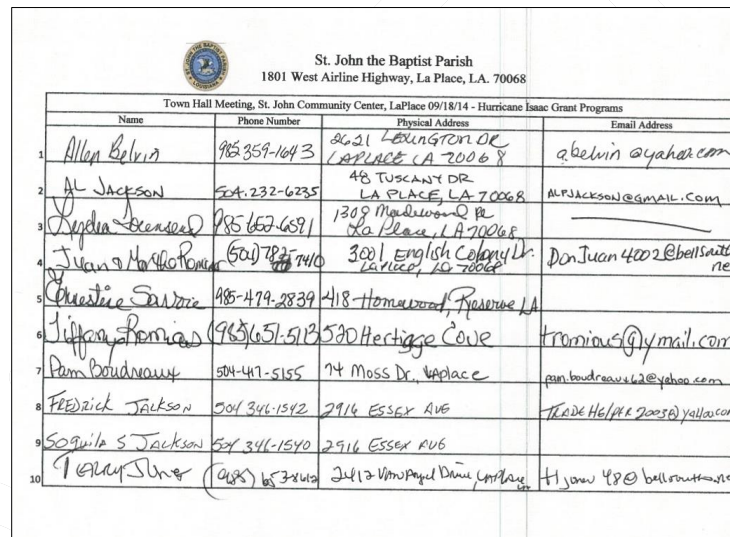 St. John the Baptist Parish
1801 West Airline Highway, La Place, LA. 70068
Town Hall Meeting, St. John Community Center, LaPlace 09/18/14 - Hurricane Isaac Grant Programs
Name Phone Number Physical Address Email Address
1 Allen Belvin 985 359-1643 2621 LEXINGTON DR LAPLACE LA 70068 a.belvin@yahoo.com
2 AL JACKSON 504.232-6235 48 TUSCANY DR LA PLACE, LA 70068 ALPJACKSON@GMAIL.COM
3 985-652-6591 1309 La Place, LA 70068
4 Juan & Martha (504) 782-7410 3001 English Colony Dr. LaPlace, LA 70068 DonJuan4002@bellsouth.ne
5 985-479-2839 418 Homewood, Reserve LA
6 Tiffany (985) 651-5113 520 Heritage Cove @ymail.com
7 Pam Boudreaux 504-417-5155 74 Moss Dr., LAplace pam.boudreaux62@yahoo.com
8 FREDRICK JACKSON 504 346-1542 2916 ESSEX AVE
9 S JACKSON 504 346-1540 2916 ESSEX AVE
10 (985) 2412 Drive, LAPlace